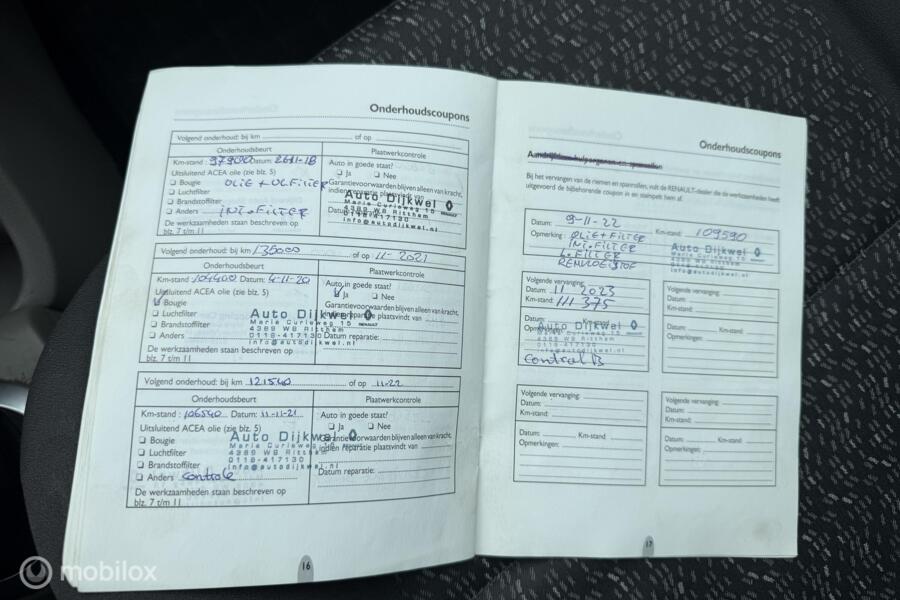 Onderhoudscoupons
Volgend onderhoud: bij km of op
Onderhoudsbeurt Plaatwerkcontrole
Km-stand : 97900 Datum: 26-11-18
Auto in goede staat?
Uitsluitend ACEA olie (zie blz. 5)
Ja Nee
Bougie OLIE + OLFILTER
Garantievoorwaarden blijven alleen van kracht,
indien reparatie plaatsvindt van
Luchtfilter
Brandstoffilter
Anders INT.FILTER
Datum
De werkzaamheden staan beschreven op
blz. 7 t/m 11
Auto Dijkwel
Marie Curieweg 15
4389 WB Ritthem
0118-417130
info@autodijkwel.nl
RENAULT
Volgend onderhoud: bij km 135000 of op 11-2021
Onderhoudsbeurt Plaatwerkcontrole
Km-stand : 104400 Datum: 4-11-20
Auto in goede staat?
Uitsluitend ACEA olie (zie blz. 5)
Ja Nee
Bougie
Garantievoorwaarden blijven alleen van kracht,
indien reparatie plaatsvindt van
Luchtfilter
Brandstoffilter
Anders
Datum reparatie:
De werkzaamheden staan beschreven op
blz. 7 t/m 11
Auto Dijkwel
Marie Curieweg 15
4389 WB Ritthem
0118-417130
info@autodijkwel.nl
RENAULT
Volgend onderhoud: bij km 121540 of op 11-22
Onderhoudsbeurt Plaatwerkcontrole
Km-stand : 106540 Datum: 11-11-21
Auto in goede staat?
Uitsluitend ACEA olie (zie blz. 5)
Ja Nee
Bougie
Garantievoorwaarden blijven alleen van kracht,
indien reparatie plaatsvindt van
Luchtfilter
Brandstoffilter
Anders controle
Datum reparatie:
De werkzaamheden staan beschreven op
blz. 7 t/m 11
Auto Dijkwel
Marie Curieweg 15
4389 WB Ritthem
0118-417130
info@autodijkwel.nl
16
Onderhoudscoupons
Bij het vervangen van de riemen en spanrollen, vult de RENAULT-dealer die de werkzaamheden heeft
uitgevoerd de bijbehorende coupon in en stempelt hem af.
Datum: 9-11-22 Km-stand: 109590
Opmerking: OLIE+FILTER
INT.FILTER
L.FILTER
REMVLOEISTOF
Auto Dijkwel
Marie Curieweg 15
4389 WB Ritthem
0118-417130
info@autodijkwel.nl
Volgende vervanging:
Datum: 11 2023
Km-stand: 111 375
Datum: Km-stand
Opmerkingen:
Auto Dijkwel
Marie Curieweg 15
4389 WB Ritthem
0118-417130
info@autodijkwel.nl
Control B
Volgende vervanging:
Datum:
Km-stand:
Datum: Km-stand
Opmerkingen:
Volgende vervanging:
Datum:
Km-stand:
Datum: Km-stand
Opmerkingen:
Volgende vervanging:
Datum:
Km-stand:
Datum: Km-stand
Opmerkingen:
17
mobilox